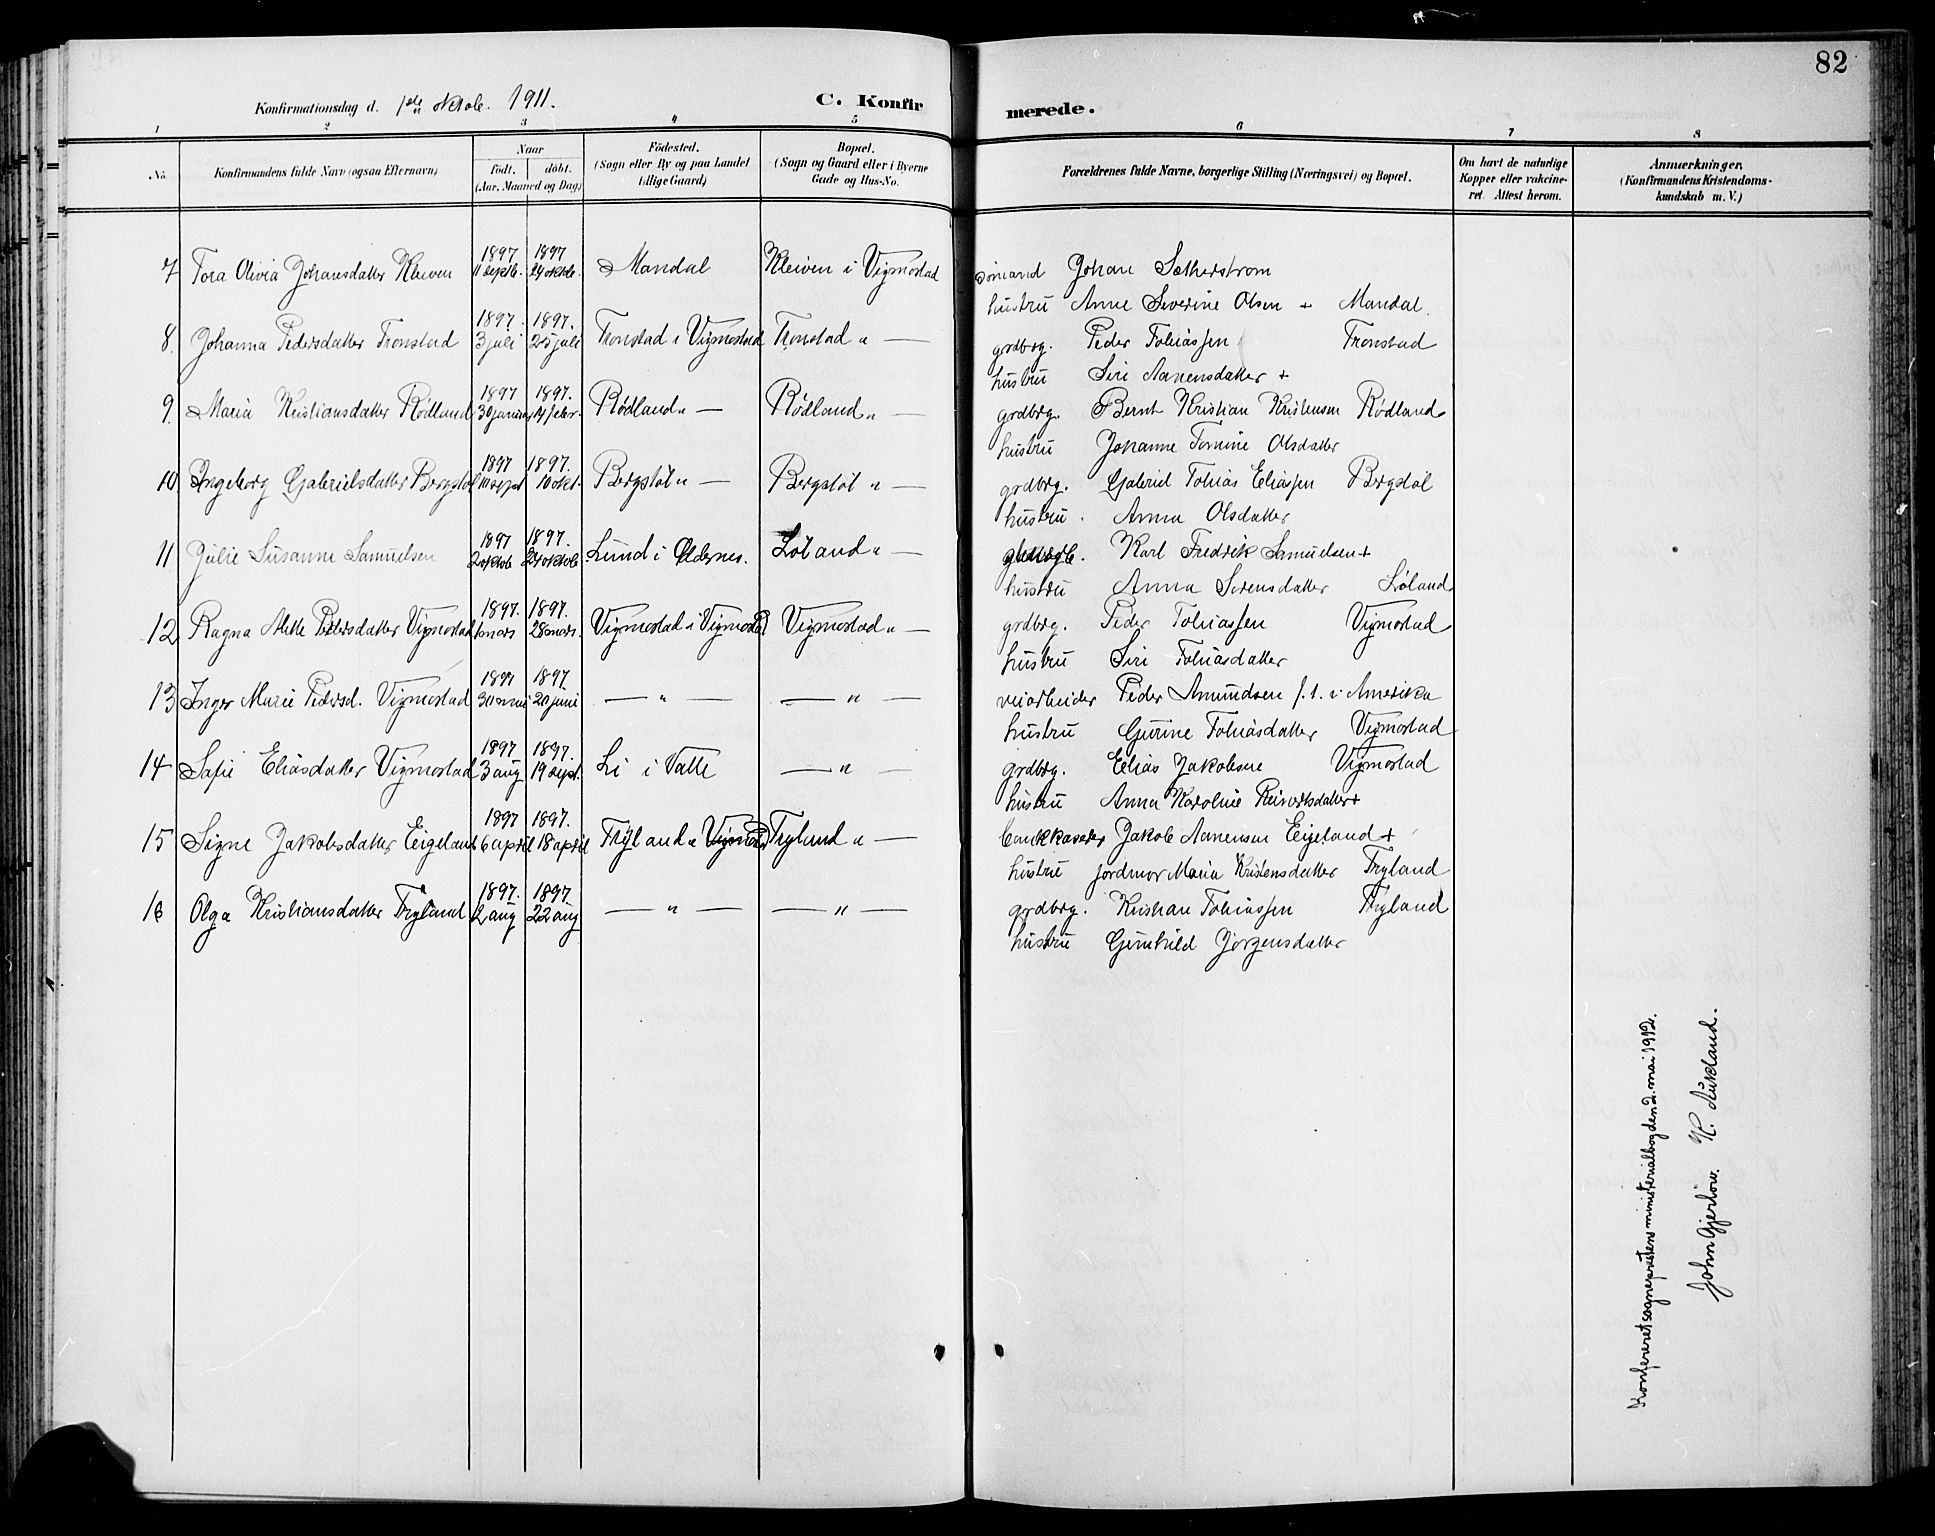 82
Konfirmationsdag d. 1ste oktob. 1911.
C. Konfirmerede.
1 2 3 4 5 6 7 8
No.
Konfirmandens fulde Navn (ogsaa Efternavn)
Naar
født. døbt.
(Aar, Maaned og Dag)
Födested.
(Sogn eller By og paa Landet
tillige Gaard)
Bopæl.
(Sogn og Gaard eller i Byerne
Gade og Hus-No.
Forældrenes fulde Navne, borgerlige Stilling (Næringsvei) og Bopæl.
Om havt de naturlige
Kopper eller vakcine-
ret. Attest herom.
Anmærkninger.
(Konfirmandens Kristendoms-
kundskab m. V.)
7 Tora Olivia Johansdatter Kleiven 1897 11 septb. 1897 24 oktob. Mandal Kleiven i Vigmostad sömand Johan Sætherstrom
hustru Anne Severine Olsen + Mandal.
8. Johanna Pedersdatter Tronstad 1897. 3 juli 1897. 25 juli Tronstad i Vigmostad Tronstad " — grdbrg. Peder Tobiassen Tronstad
hustru Siri Aanensdatter +
9. Maria Kristiansdatter Rødland 1897 30 januar 1897. 14 febr. Rødland " — Rødland " — grdbrg. Bernt Kristian Kristensen Rødland
hustru Johanne Tomine Olsdatter
10 Ingeborg Gabrielsdatter Bergstøl 1897 10 sept 1897. 10 okt. Bergstøl " — Bergstøl " — grdbrg. Gabriel Tobias Eliassen Bergstøl
hustru. Anna Olsdatter
11 Julie Susanne Samuelsen 1897 2 oktob 1897. 24 oktob. Lund i Oddernes. Løland " — Karl Fredrik Samuelsen +
hustru Anna Sørensdatter Løland
12 Ragna Alette Pedersdatter Vigmostad 1897. 1 mars 1897. 28 mars. Vigmostad i Vigmostad Vigmostad " — grdbrg. Peder Tobiassen Vigmostad
hustru Siri Tobiasdatter
13 Inger Marie Pedersd. Vigmostad 1897 30 mai 1897. 20 juni — " — — " — veiarbeider Peder Amundsen f. t. i Amerika
hustru Gurine Tobiasdatter Vigmostad
14 Sofie Eliasdatter Vigmostad 1897 3 aug 1897. 19 sept. Li i Valle — " — grdbrg. Elias Jakobsen Vigmostad
hustru Anna Karoline Reinertsdatter +
15 Signe Jakobsdatter Eigeland 1897 6 april 1897. 18 april Fryland " Vigmostad Fryland " — bankkaserer Jakob Aanensen Eigeland +
hustru jordmor Maria Kristensdatter Fryland
16 Olga Kristiansdatter Fryland 1897. 2 aug 1897. 22 aug — " — — " — grdbrg. Kristian Tobiassen Fryland
hustru Gunhild Jörgensdatter
Konfereret sogneprestens ministerialbog den 2. mai 1912.
John Gjerlöw. K. Aukland.